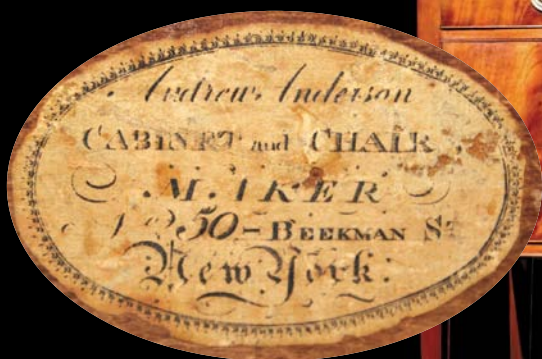 Andrew Anderson
CABINET and CHAIR
MAKER
No 50 – BEEKMAN St
New York.